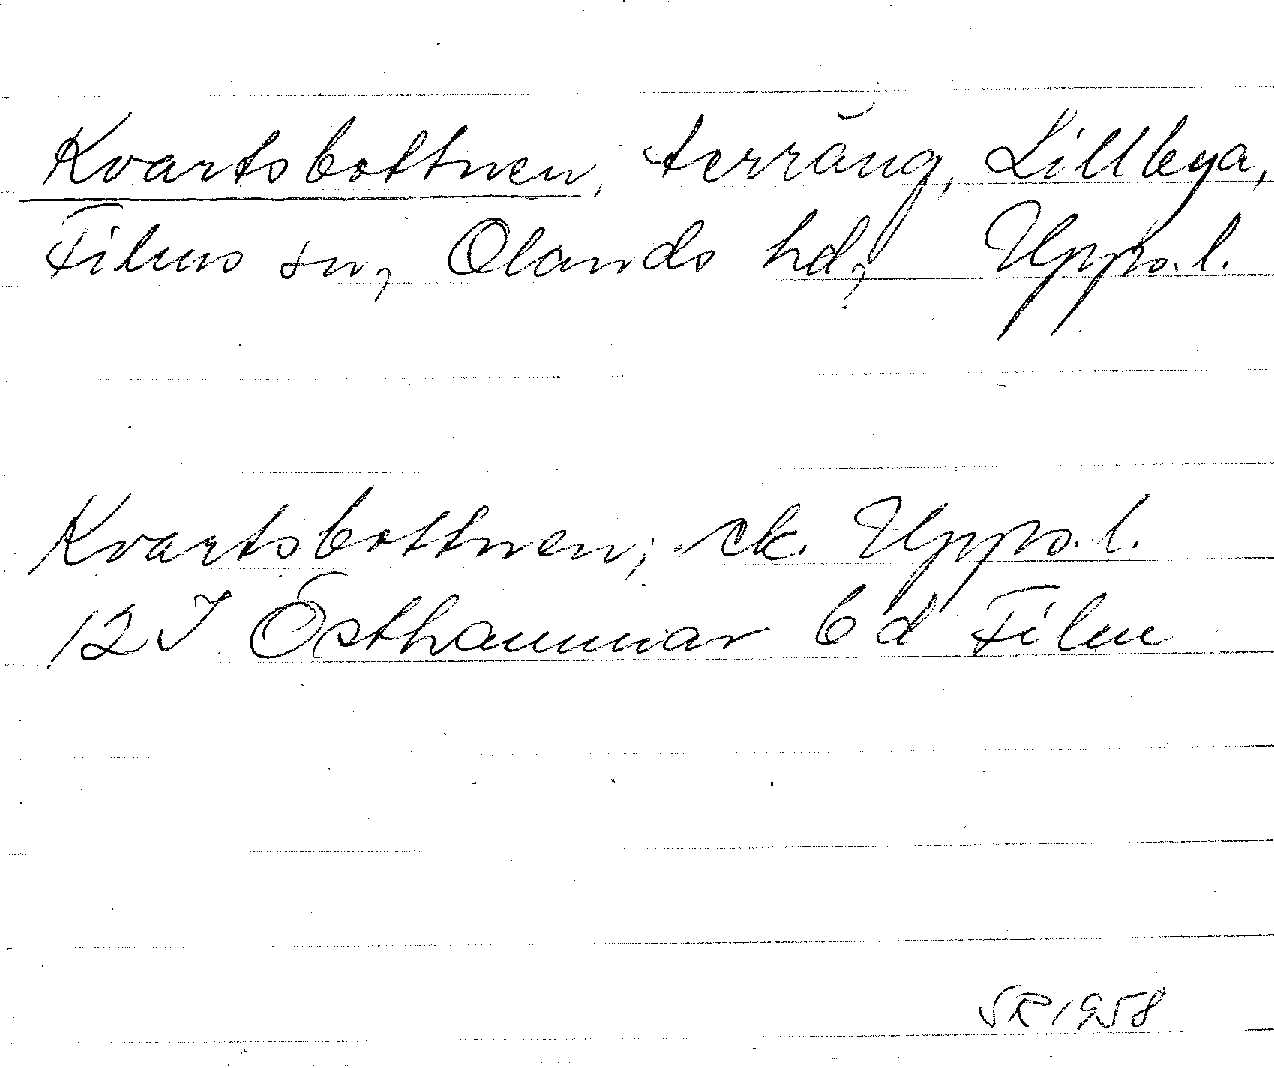 Kvartsbottnen, terräng, Lillbya,
Films sn, Olands hd, Upps.l.
Kvartsbottnen; ek. Upps.l.
12I Östhammar 6d Film
SR 1958